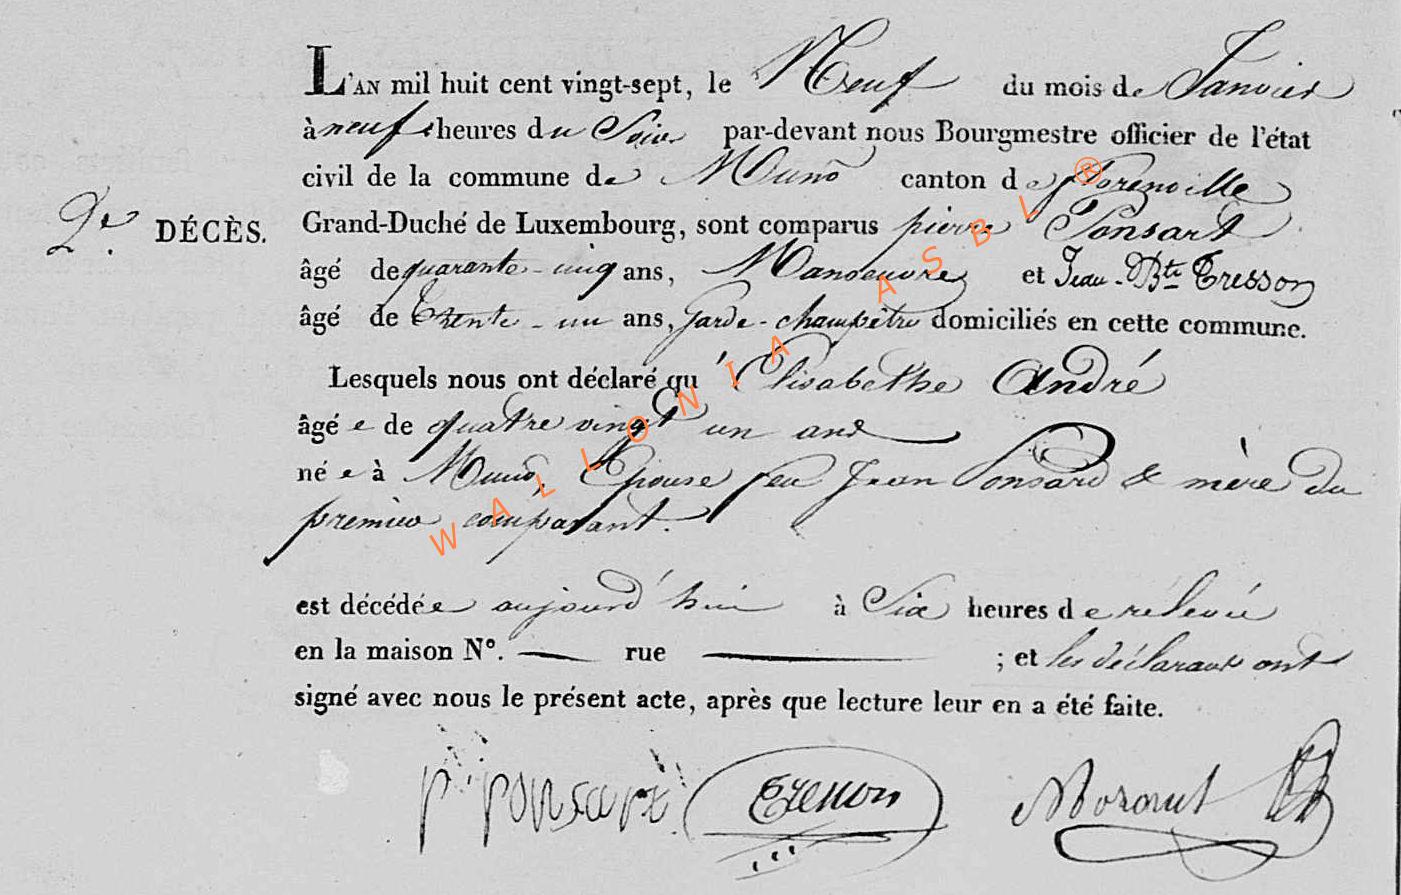 L'AN mil huit cent vingt-sept, le Neuf du mois de Janvier
à neuf heures du Soir par-devant nous Bourgmestre officier de l'état
civil de la commune de Muno canton de florenville
2e. DÉCÈS. Grand-Duché de Luxembourg, sont comparus pierre Ponsart
âgé de quarante-cinq ans, Manoeuvre et Jean-Bte Tresson
âgé de Trente-un ans, garde-champêtre domiciliés en cette commune.
Lesquels nous ont déclaré qu'Elisabethe André
âgée de quatre vingt un ans
née à Muno, Epouse feu Jean Ponsard & mère du
premier comparant.
est décédée aujourd'hui à Six heures de rélevée
en la maison N°. — rue — ; et les déclarans ont
signé avec nous le présent acte, après que lecture leur en a été faite.
p. ponsart Tresson
WALLONIA ASBL ®